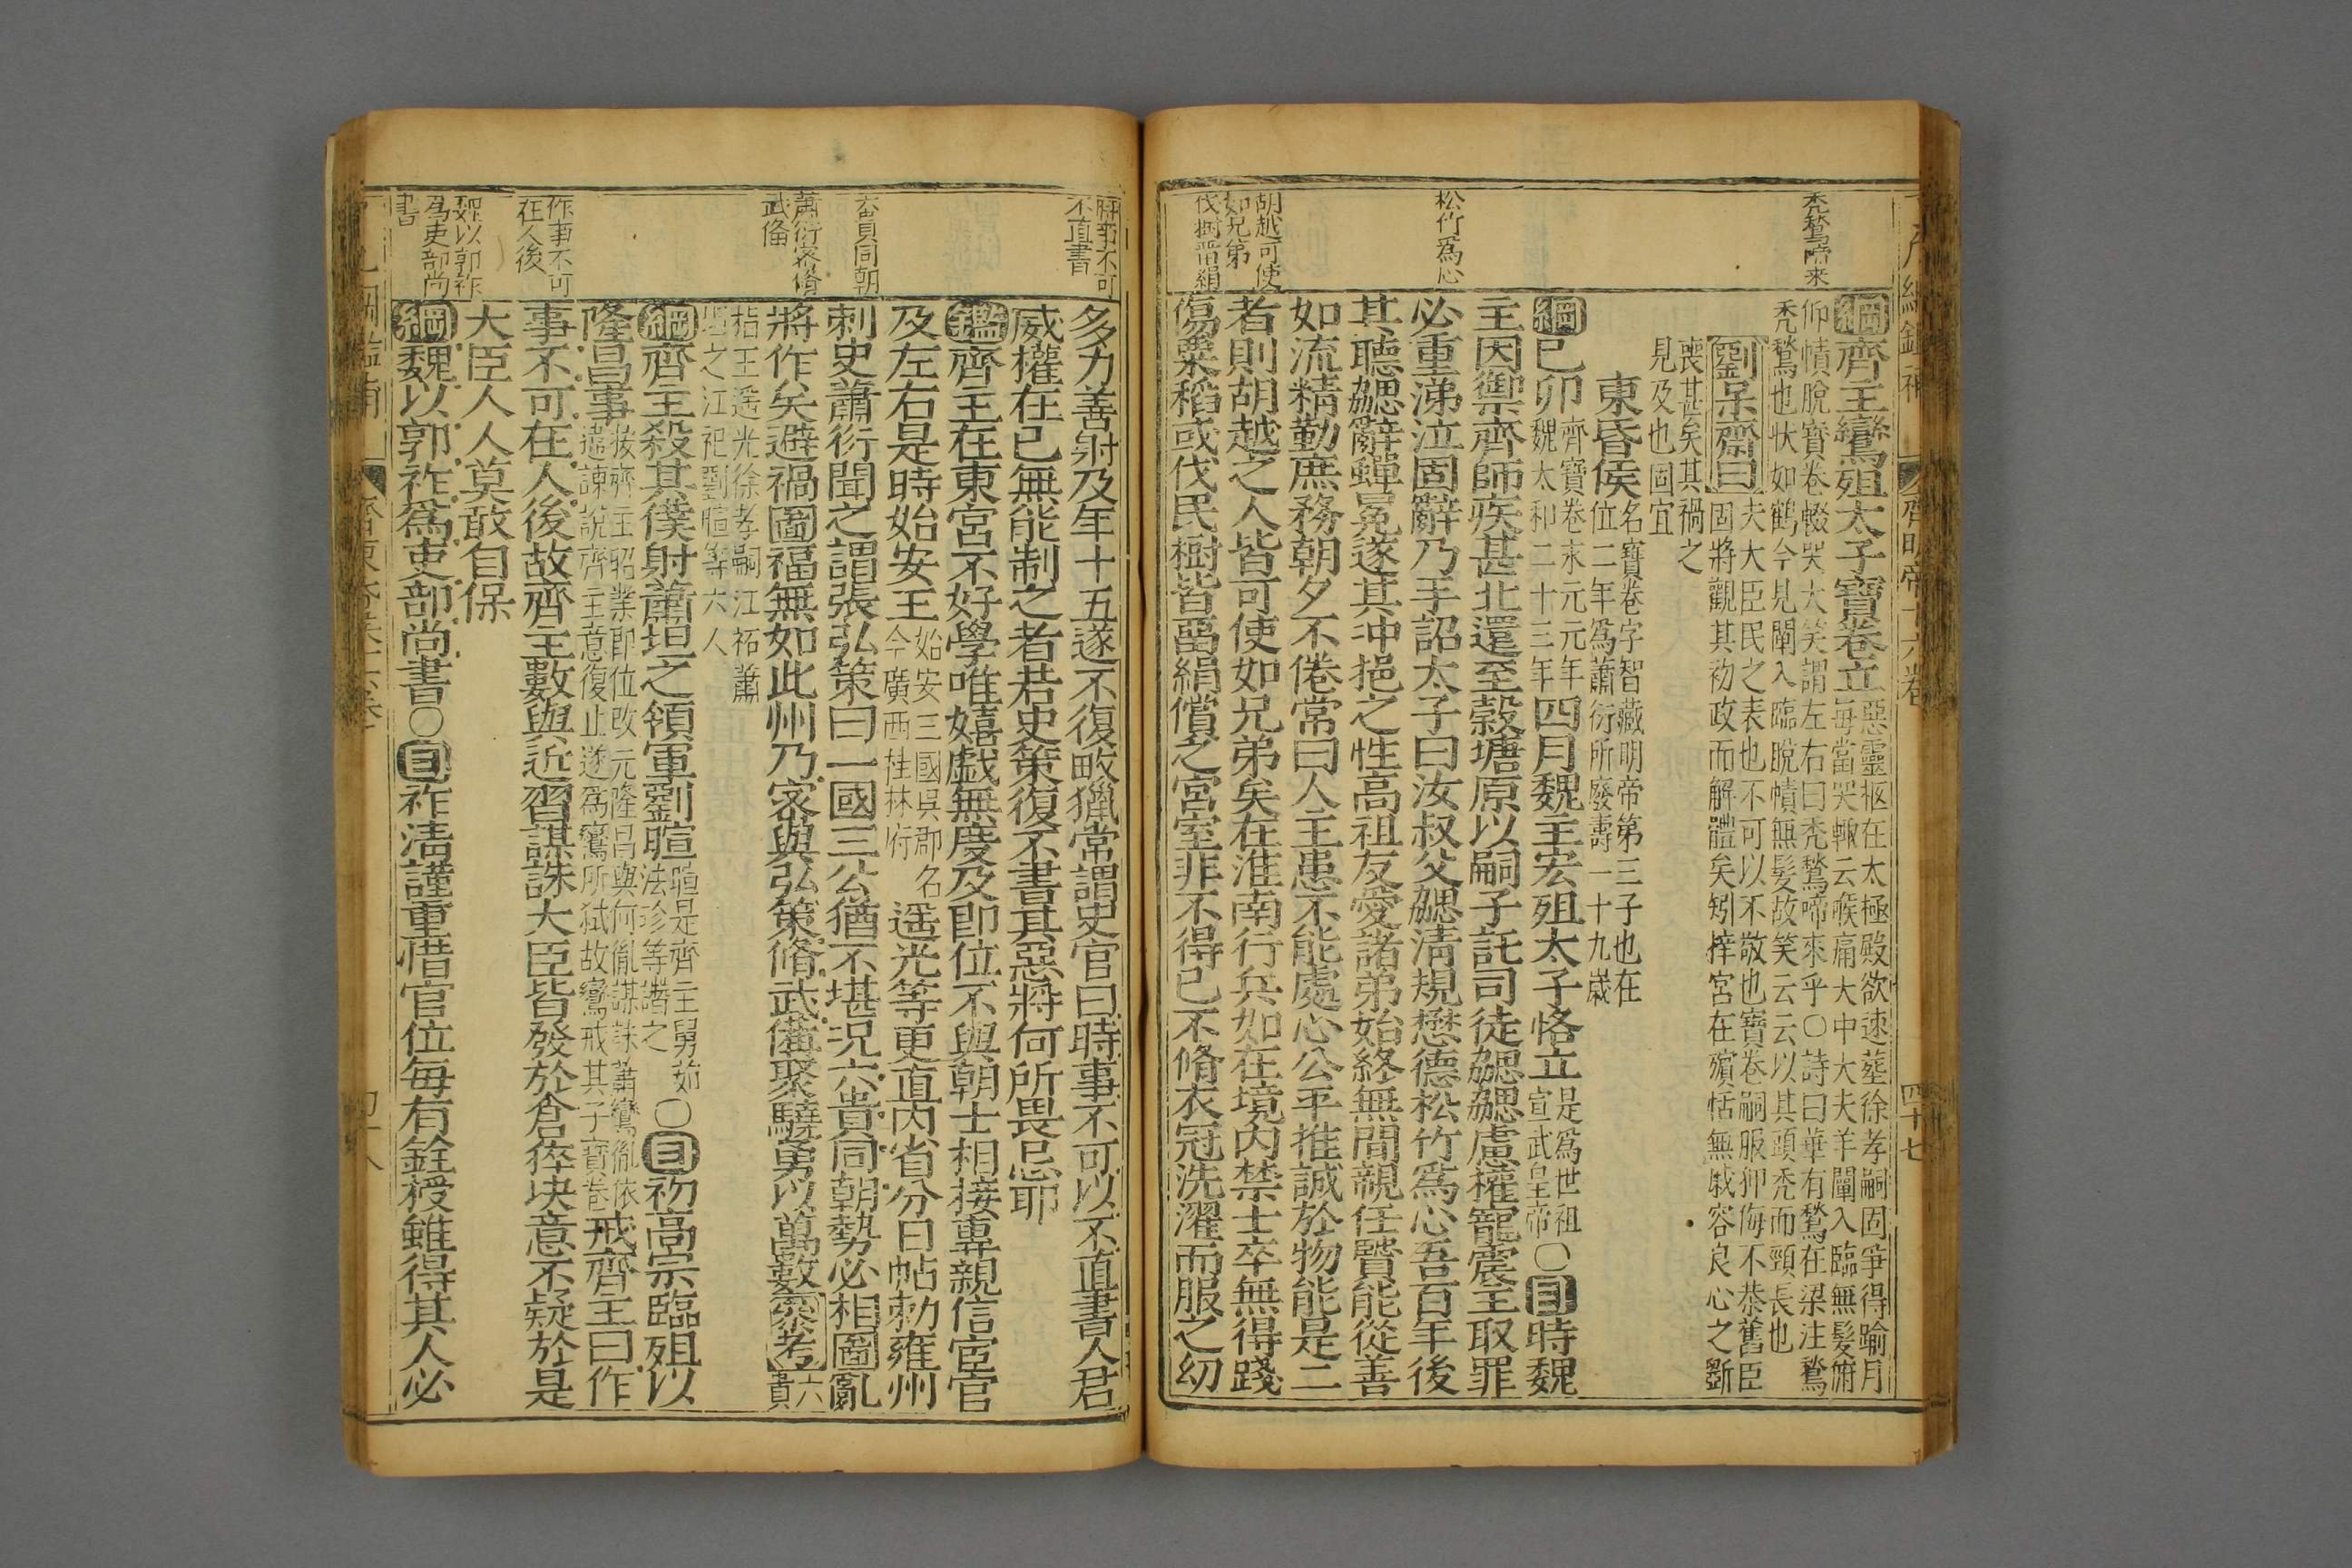 禿鶖啼來
松竹爲心
胡越可使
如兄弟
伐樹畱絹
綱齊主鸞殂太子寶卷立
惡靈柩在太極殿欲速塟徐孝嗣固爭得踰月
每當哭輙云喉痛大中大夫羊闡入臨無髮俯
仰幘脫寶卷輟哭大笑謂左右曰禿鶖啼來乎○詩曰華有鶖在梁注鶖
禿鶖也狀如鶴今見闡入臨脫幘無髮故笑云云以其頭禿而頸長也
劉呆齋曰
夫大臣民之表也不可以不敬也寶卷嗣服狎侮不恭舊臣
固將觀其初政而解體矣矧梓宮在殯恬無戚容良心之斵
喪甚矣其禍之
見及也固宜
東昏侯
名寶卷字智藏明帝第三子也在
位二年爲蕭衍所廢壽一十九歲
綱己卯
齊寶卷永元元年
魏太和二十三年
四月魏主宏殂太子恪立
是爲世祖
宣武皇帝
○目時魏
主因禦齊師疾甚北還至穀塘原以嗣子託司徒勰勰慮權寵震主取罪
必重涕泣固辭乃手詔太子曰汝叔父勰淸規懋德松竹爲心吾百年後
其聽勰辭蟬冕遂其冲挹之性高祖友愛諸弟始終無間親任賢能從善
如流精勤庶務朝夕不倦常曰人主患不能處心公平推誠於物能是二
者則胡越之人皆可使如兄弟矣在淮南行兵如在境內禁士卒無得踐
傷粟稻或伐民樹皆畱絹償之宮室非不得已不脩衣冠洗濯而服之幼
齊明帝十六卷
四十七
時事不可
不直書
六貴同朝
蕭衍密脩
武偹
作事不可
在人後
魏以郭祚
爲吏部尚
書
多力善射及年十五遂不復畋獵常謂史官曰時事不可以不直書人君
威權在已無能制之者若史策復不書其惡將何所畏忌耶
鑑齊主在東宮不好學唯嬉戯無度及卽位不與朝士相接專親信宦官
及左右是時始安王
始安三國吳郡名
今廣西桂林府
遥光等更直內省分日帖勑雍州
刺史蕭衍聞之謂張弘策曰一國三公猶不堪况六貴同朝勢必相圖亂
將作矣避禍圖福無如此州乃密與弘策脩武備聚驍勇以萬數
索考
六貴
指王遥光徐孝嗣江祏蕭
坦之江祀劉暄等六人
綱齊主殺其僕射蕭坦之領軍劉暄
暄是齊主舅茹
法珍等譖之
○目初高宗臨殂以
隆昌事
按齊主昭業即位改元隆昌與何胤謀誅蕭鸞胤依
違諫說齊主意復止遂爲鸞所弑故鸞戒其子寶卷
戒齊主曰作
事不可在人後故齊主數與近習謀誅大臣皆發於倉猝决意不疑於是
大臣人人莫敢自保
綱魏以郭祚爲吏部尚書○目祚淸謹重惜官位每有銓授雖得其人必